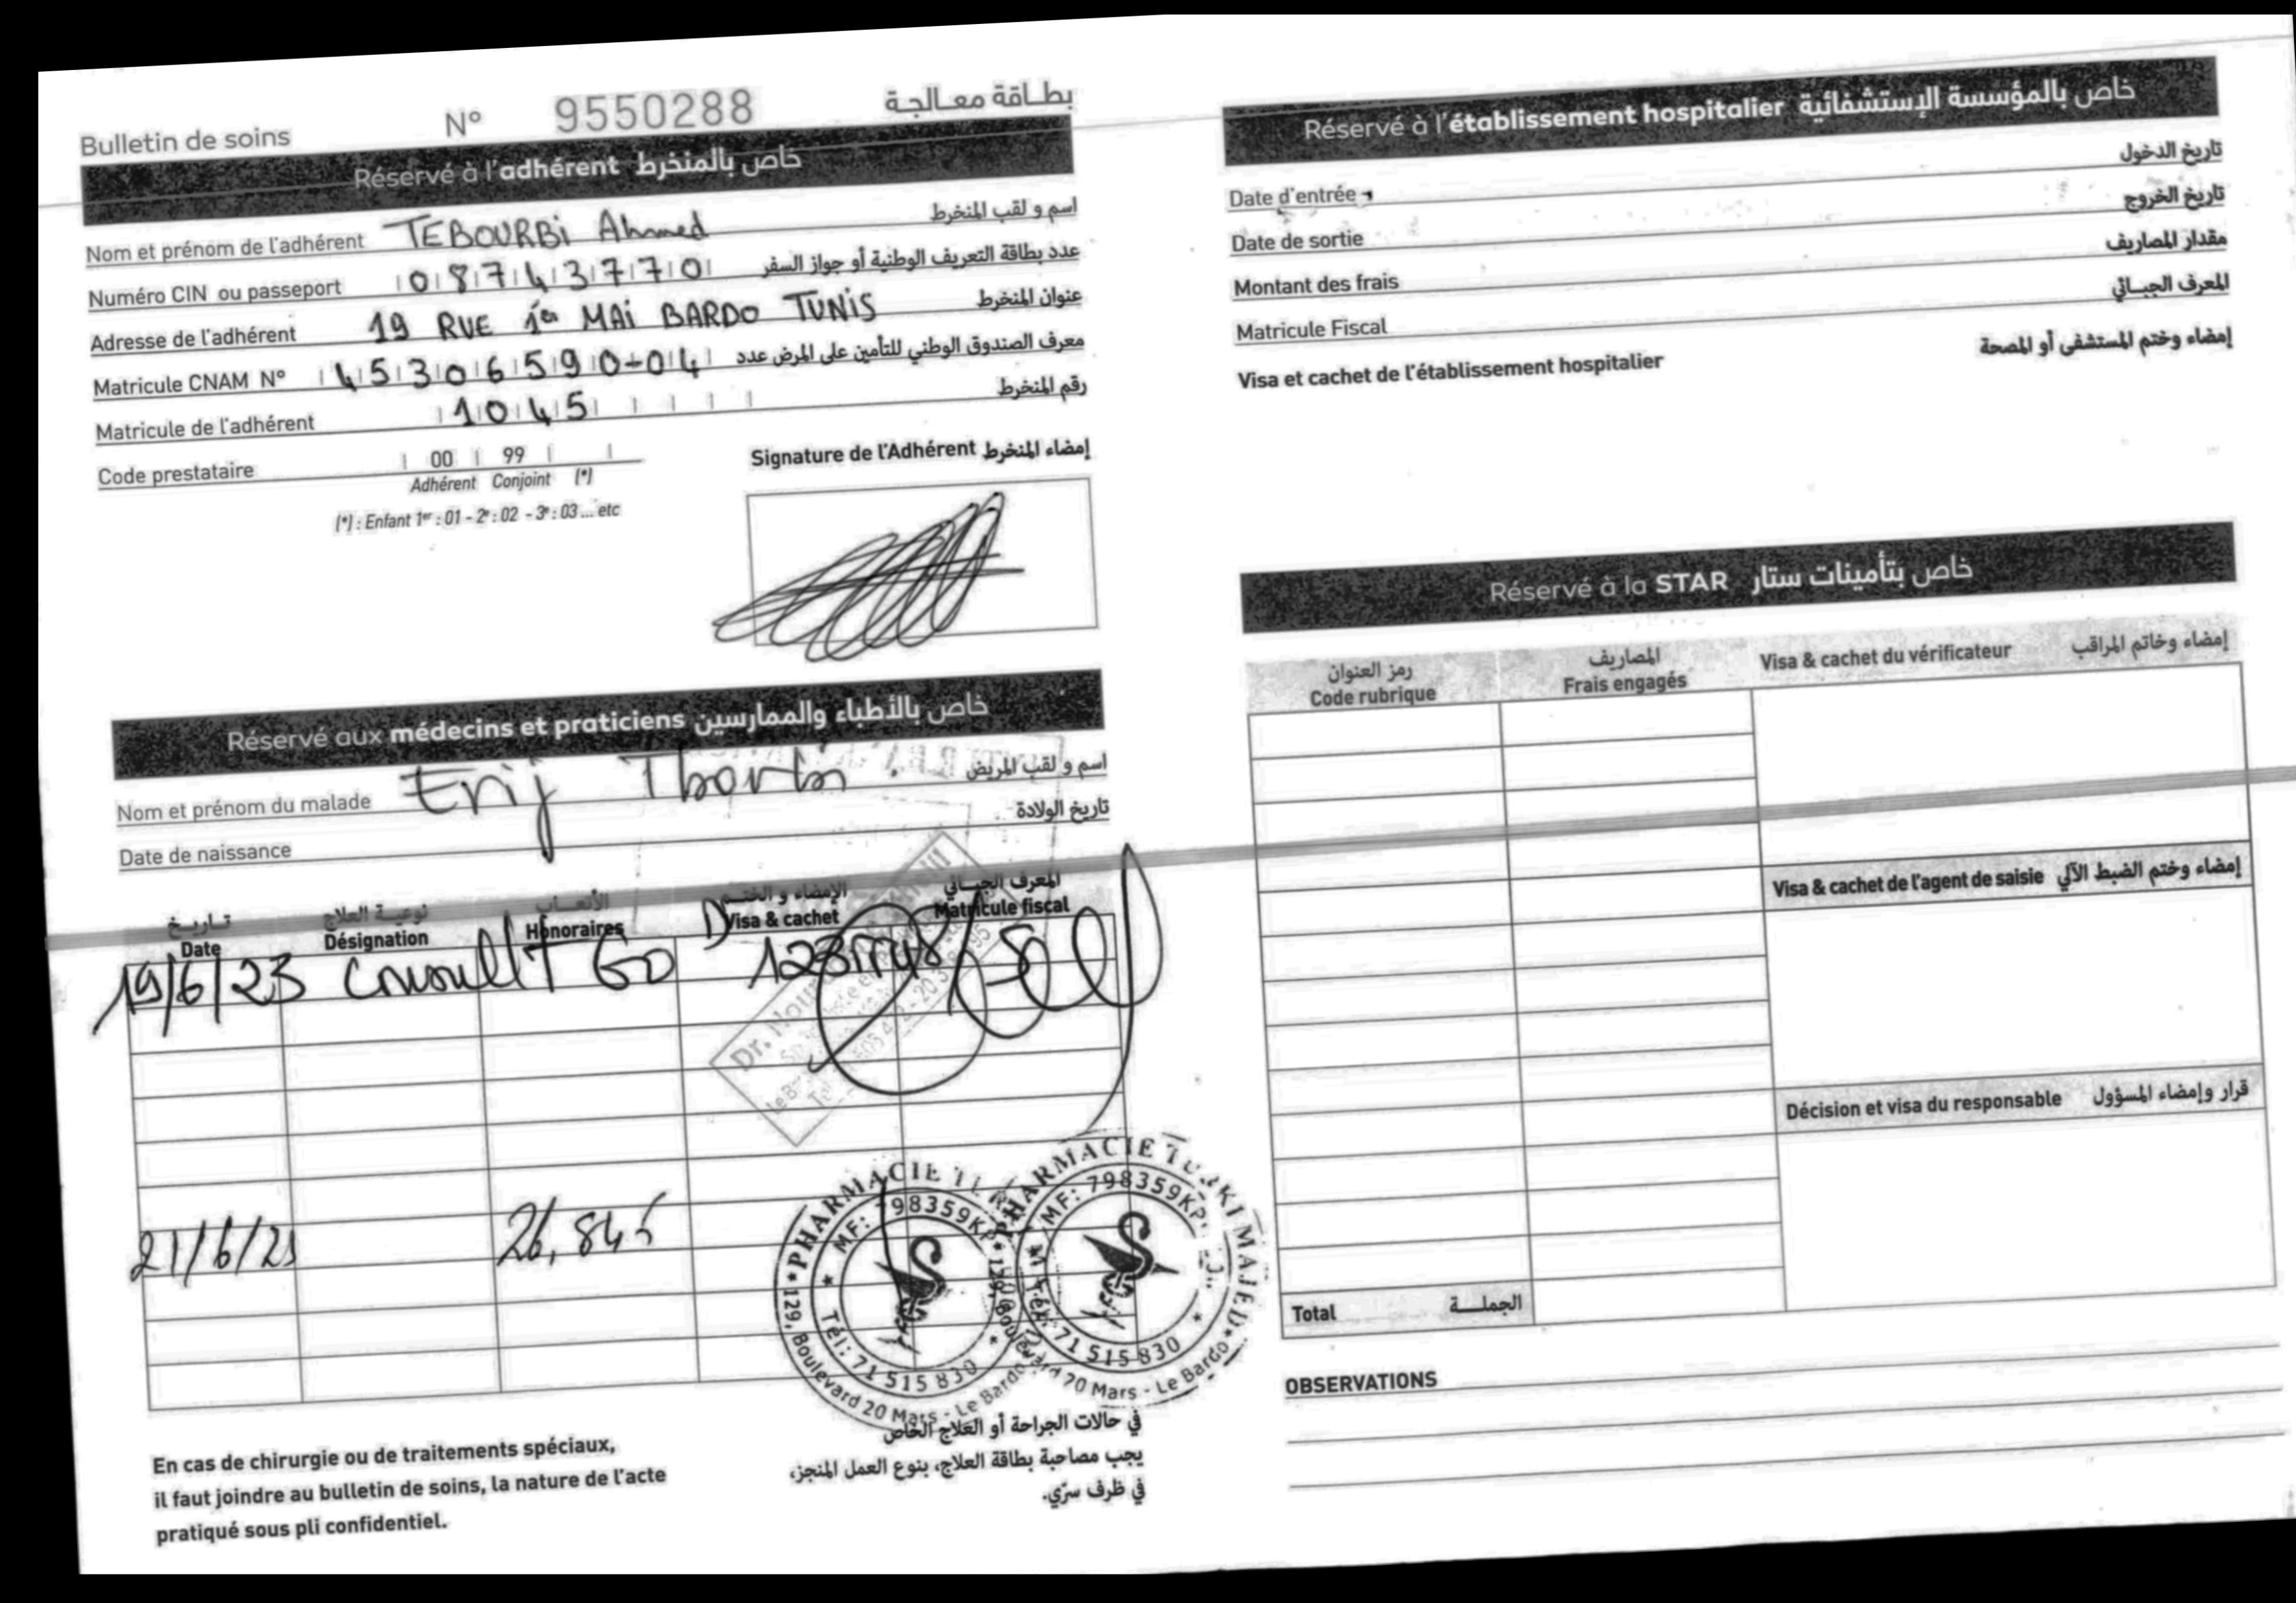 Bulletin de soins N° 9550288 بطاقة معالجة
Réservé à l'adhérent خاص بالمنخرط
Nom et prénom de l'adhérent TEBOURBI Ahmed اسم و لقب المنخرط
Numéro CIN ou passeport 08743770 عدد بطاقة التعريف الوطنية أو جواز السفر
Adresse de l'adhérent 19 RUE 1er MAI BARDO TUNIS عنوان المنخرط
Matricule CNAM N° 45306590-04 معرف الصندوق الوطني للتأمين على المرض عدد
Matricule de l'adhérent 1045 رقم المنخرط
Code prestataire 00 99
Adhérent Conjoint (*)
(*) : Enfant 1er : 01 - 2e : 02 - 3e : 03 ... etc
Signature de l'Adhérent إمضاء المنخرط
Réservé aux médecins et praticiens خاص بالأطباء والممارسين
Nom et prénom du malade Erij اسم و لقب المريض
Date de naissance تاريخ الولادة
تاريخ نوعية العلاج الأتعاب الإمضاء و الختم المعرف الجبائي
Date Désignation Honoraires Visa & cachet Matricule fiscal
19/6/23 Consult 60 D
Dr.
21/6/23 26,845
PHARMACIE TURKI MAJED
MF: 798359KP
Tél: 71 515 830
129, Boulevard 20 Mars - Le Bardo
PHARMACIE TURKI MAJED
MF: 798359KP
Tél: 71 515 830
129, Boulevard 20 Mars - Le Bardo
En cas de chirurgie ou de traitements spéciaux,
il faut joindre au bulletin de soins, la nature de l'acte
pratiqué sous pli confidentiel.
في حالات الجراحة أو العلاج الخاص
يجب مصاحبة بطاقة العلاج، بنوع العمل المنجز،
في ظرف سرّي.
Réservé à l'établissement hospitalier خاص بالمؤسسة الإستشفائية
Date d'entrée تاريخ الدخول
Date de sortie تاريخ الخروج
Montant des frais مقدار المصاريف
Matricule Fiscal المعرف الجبائي
Visa et cachet de l'établissement hospitalier إمضاء وختم المستشفى أو المصحة
Réservé à la STAR خاص بتأمينات ستار
رمز العنوان المصاريف
Code rubrique Frais engagés Visa & cachet du vérificateur إمضاء وخاتم المراقب
Visa & cachet de l'agent de saisie إمضاء وختم الضبط الآلي
Décision et visa du responsable قرار وإمضاء المسؤول
Total الجملة
OBSERVATIONS